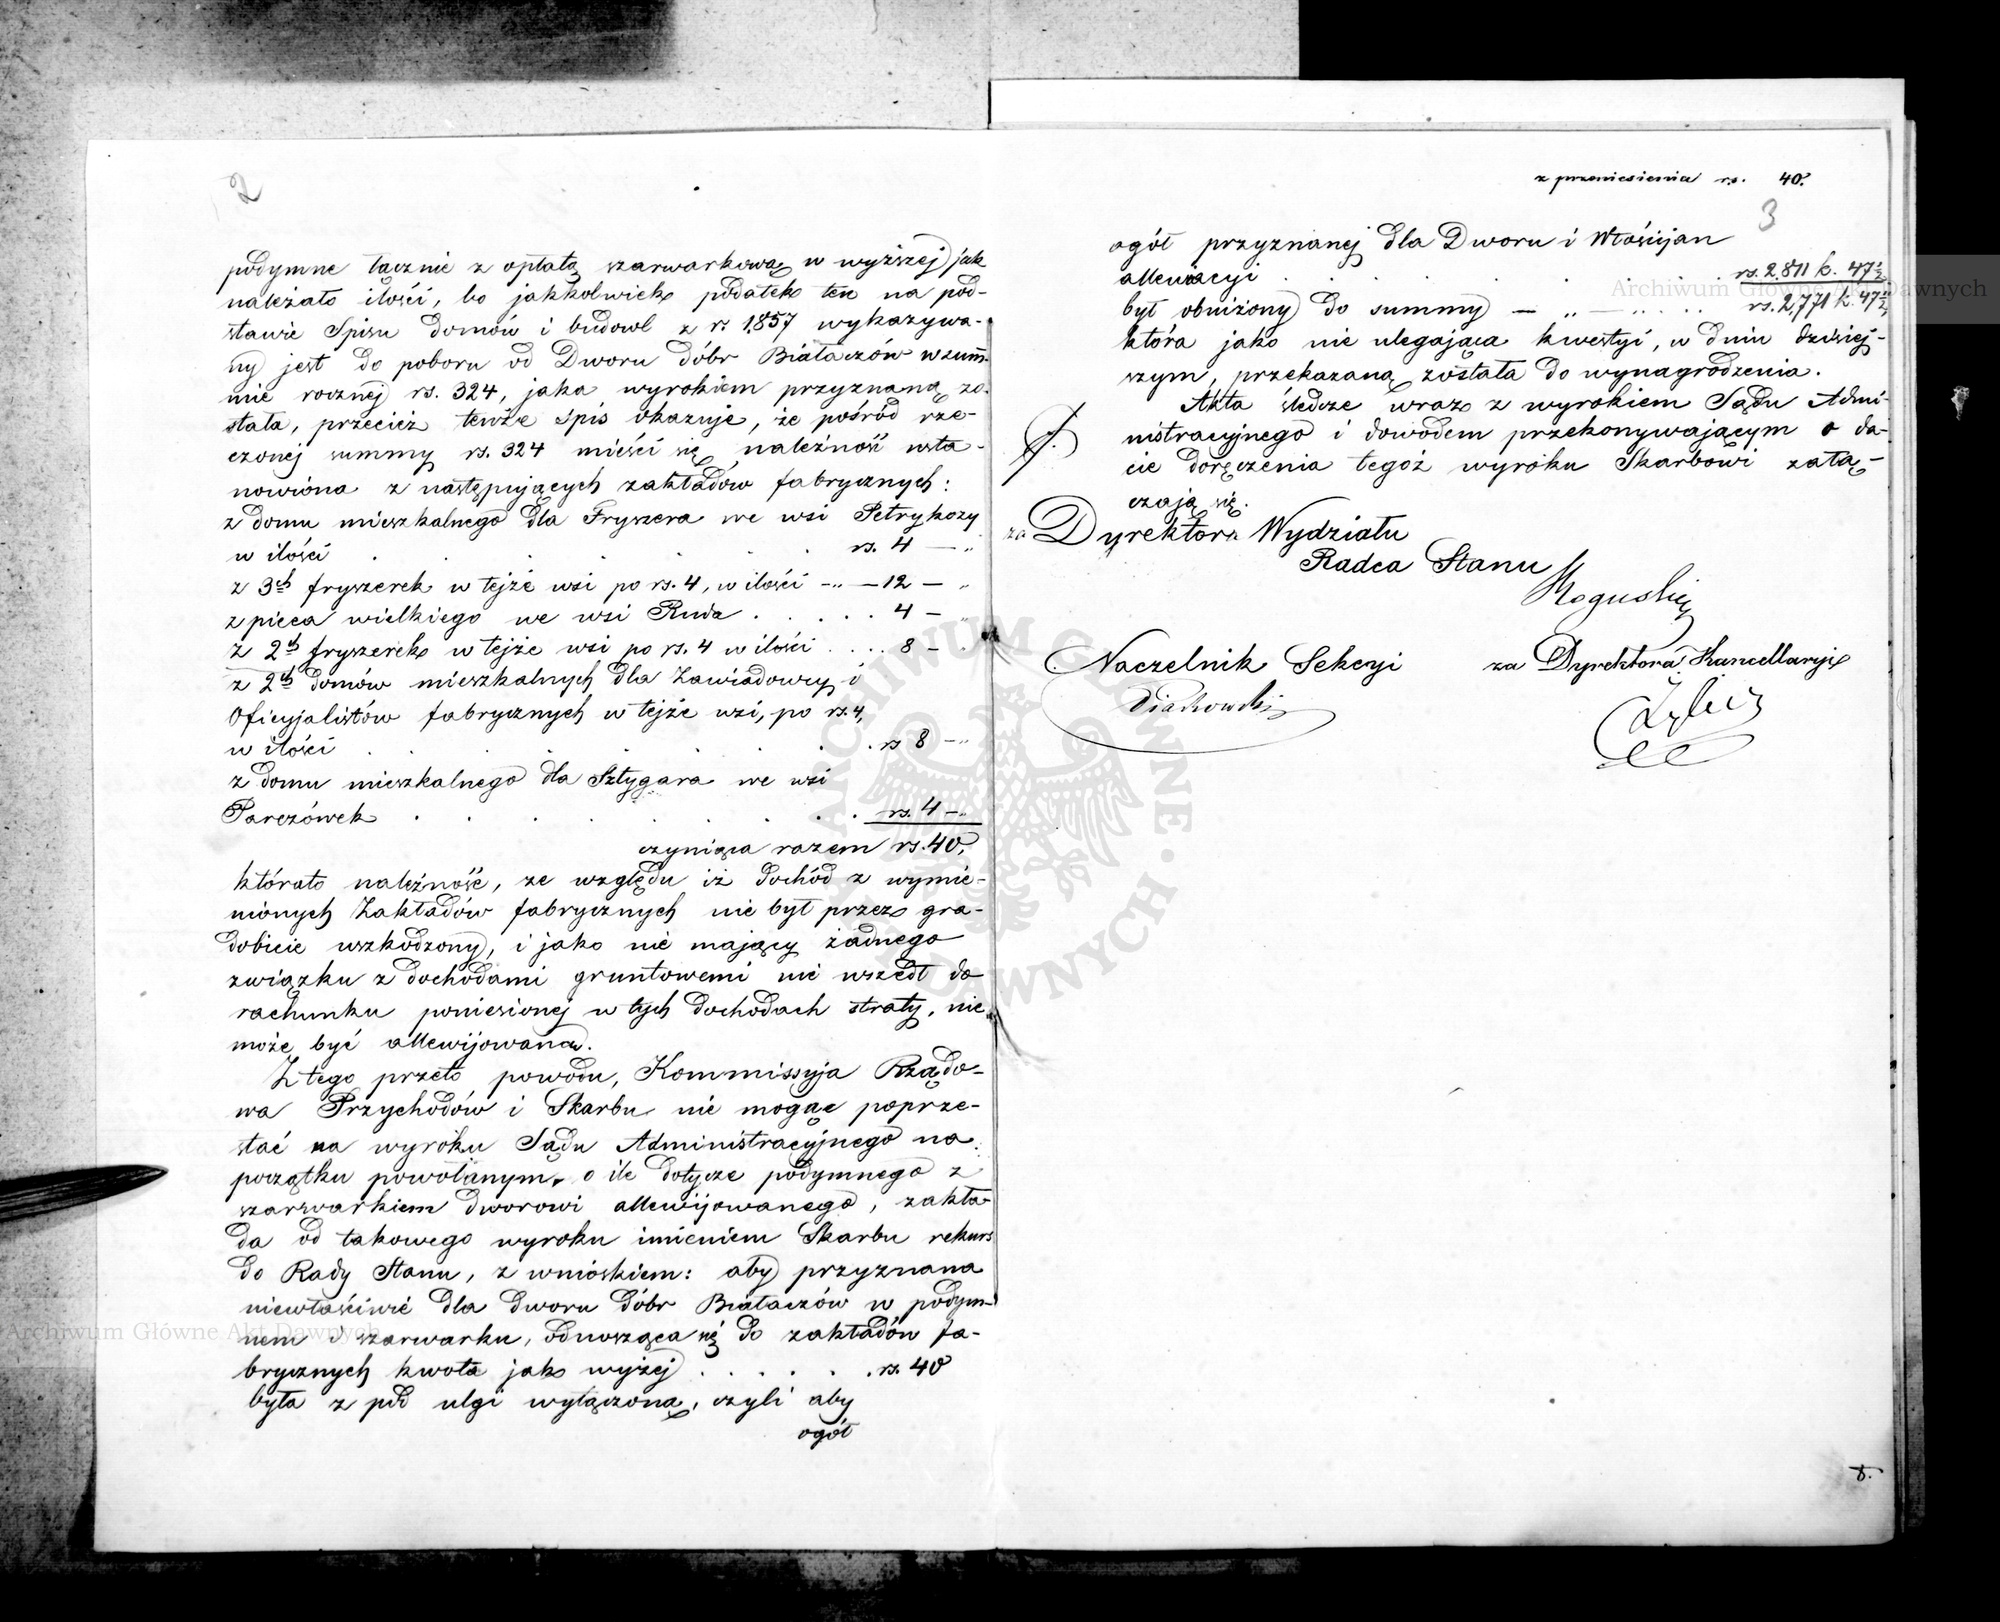 2
podymne łącznie z opłatą szarwarkową w wyższej jak
należało ilości, bo jakkolwiek podatek ten na pod-
stawie Spisu domów i budowl z r. 1857 wykazywa-
ny jest do poboru od Dworu dóbr Białaczów w sum-
mie rocznej rs. 324, jaka wyrokiem przyznaną zo-
stała, przecież tenże spis okazuje, że pośród rze-
czonej summy rs. 324 mieści się należność usta-
nowiona z następujących zakładów fabrycznych:
z domu mieszkalnego dla Fryszera we wsi Petrykozy
w ilości . . . . . . rs. 4 — "
z 3ch fryszerek w tejże wsi po rs. 4, w ilości — " — 12 — "
z pieca wielkiego we wsi Ruda . . . . . 4 — "
z 2ch fryszerek w tejże wsi po rs. 4 w ilości . . . . 8 — "
z 2ch domów mieszkalnych dla Zawiadowcy i
Oficyjalistów fabrycznych w tejże wsi, po rs. 4,
w ilości . . . . . . rs 8 — "
z domu mieszkalnego dla Sztygara we wsi
Parczówek . . . . . . . . rs. 4 — "
czyniąca razem rs. 40,
którato należność, ze względu iż dochód z wymie-
nionych Zakładów fabrycznych nie był przez gra-
dobicie uszkodzony, i jako nie mający żadnego
związku z dochodami gruntowemi nie wszedł do
rachunku poniesionej w tych dochodach straty, nie
może być allewijowana.
Z tego przeto powodu, Kommissyja Rządo-
wa Przychodów i Skarbu nie mogąc poprze-
stać na wyroku Sądu Administracyjnego na
początku powołanym, o ile dotycze podymnego z
szarwarkiem dworowi allewijowanego, zakła-
da od takowego wyroku imieniem Skarbu rekurs
do Rady Stanu, z wnioskiem: aby przyznana
niewłaściwie dla dworu dóbr Białaczów w podym-
nem i szarwarku, odnosząca się do zakładów fa-
brycznych kwota jak wyżej . . . . . rs. 40
była z pod ulgi wyłączoną, czyli aby
ogół
z przeniesienia rs. 40.
3
ogół przyznanej dla Dworu i Włościjan
allewiacyi . . . . . . rs. 2,811 k. 47½
był obniżony do summy — " — " . . . rs. 2,771 k. 47½
która jako nie ulegająca kwestyi, w dniu dzisiej-
szym, przekazaną została do wynagrodzenia.
Akta śledcze wraz z wyrokiem Sądu Admi-
nistracyjnego i dowodem przekonywającym o da-
cie doręczenia tegoż wyroku Skarbowi załą-
czają się.
za Dyrektora Wydziału
Radca Stanu
Naczelnik Sekcyi za Dyrektora Kancellaryi
Archiwum Główne Akt Dawnych
Archiwum Główne Akt Dawnych
ARCHIWUM GŁÓWNE AKT DAWNYCH